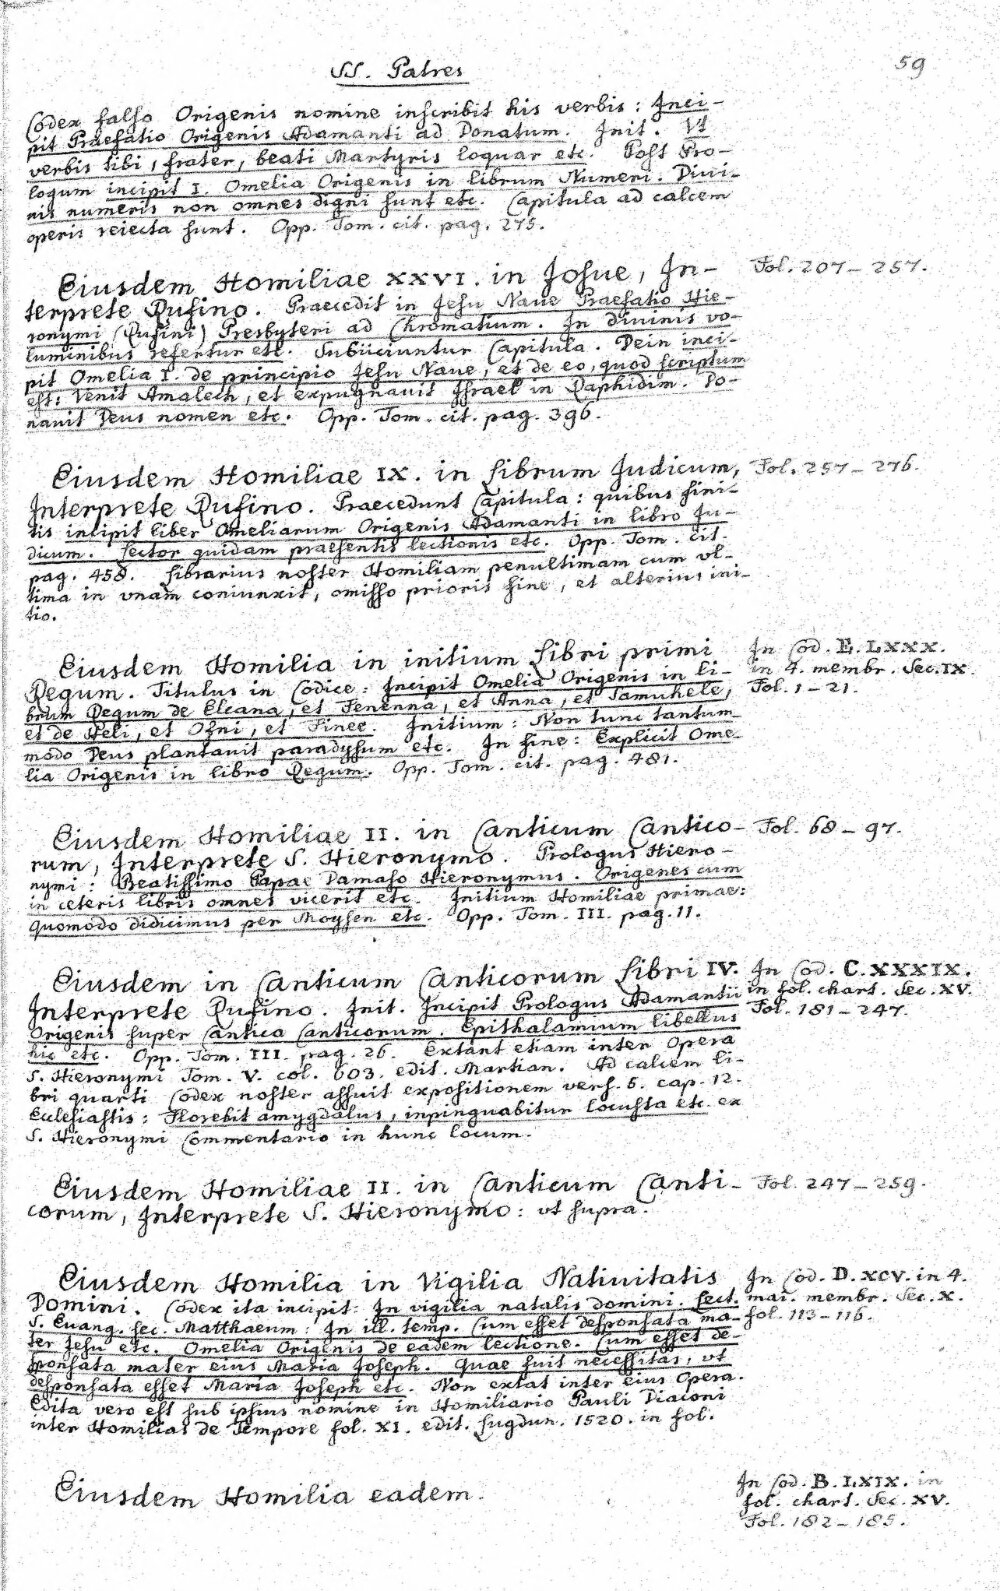 SS. Patres
59
Codex falso Origenis nomine inscribit his verbis: Inci-
pit Praefatio Origenis Adamanti ad Donatum. Init. Vt
verbis tibi, frater, beati Martyris loquar etc. Post Pro-
logum incipit I. Omelia Origenis in librum Numeri. Divi-
nis numeris non omnes digni sunt etc. Capitula ad calcem
operis reiecta sunt. Opp. Tom. cit. pag. 275.
Eiusdem Homiliae XXVI. in Josue, In-
Fol. 207–257.
terprete Rufino. Praecedit in Jesu Naue Praefatio Hie-
ronymi (Rufini) Presbyteri ad Chromatium. In diuinis vo-
luminibus refertur etc. Subiiciuntur Capitula. Dein inci-
pit Omelia I. de principio Jesu Naue, et de eo, quod scriptum
est: Venit Amalech, et expugnauit Israel in Raphidim. Do-
nauit Deus nomen etc. Opp. Tom. cit. pag. 396.
Eiusdem Homiliae IX. in Librum Judicum,
Fol. 257–276.
Interprete Rufino. Praecedunt Capitula: quibus fini-
tis incipit liber Omeliarum Origenis Adamanti in libro Ju-
dicum. Lector quidam praesentis lectionis etc. Opp. Tom. cit.
pag. 458. Librarius noster Homiliam penultimam cum vl-
tima in vnam coniunxit, omisso prioris fine, et alterius ini-
tio.
Eiusdem Homilia in initium Libri primi
In Cod. E. LXXX.
Regum. Titulus in Codice: Incipit Omelia Origenis in li-
in 4. membr. Sec. IX
brum Regum de Elcana, et Fenenna, et Anna, et Samuhele,
Fol. 1–21.
et de Heli, et Ofni, et Finee. Initium: Non tunc tantum-
modo Deus plantauit paradysum etc. In fine: Explicit Ome-
lia Origenis in libro Regum. Opp. Tom. cit. pag. 481.
Eiusdem Homiliae II. in Canticum Cantico-
Fol. 68–97.
rum, Interprete S. Hieronymo. Prologus Hiero-
nymi: Beatissimo Papae Damaso Hieronymus. Origenes cum
in ceteris libris omnes vicerit etc. Initium Homiliae primae:
Quomodo didicimus per Moysen etc. Opp. Tom. III. pag. 11.
Eiusdem in Canticum Canticorum Libri IV.
In Cod. C. XXXIX.
Interprete Rufino. Init. Incipit Prologus Adamantii
in fol. chart. Sec. XV.
Origenis super Cantica Canticorum. Epithalamium libellus
Fol. 181–247.
hic etc. Opp. Tom. III. pag. 26. Extant etiam inter Opera
S. Hieronymi Tom. V. col. 603. edit. Martian. Ad calcem li-
bri quarti Codex noster assuit expositionem vers. 5. cap. 12.
Ecclesiastis: Florebit amygdalus, inpinguabitur locusta etc. ex
S. Hieronymi Commentario in hunc locum.
Eiusdem Homiliae II. in Canticum Canti-
Fol. 247–259.
corum, Interprete S. Hieronymo: vt supra.
Eiusdem Homilia in Vigilia Natiuitatis
In Cod. D. XCV. in 4.
Domini. Codex ita incipit: In vigilia natalis domini. Lect.
mai. membr. Sec. X.
S. Euang. sec. Matthaeum: In ill. temp. Cum esset desponsata ma-
fol. 113–116.
ter Jesu etc. Omelia Origenis de eadem lectione. Cum esset de-
sponsata mater eius Maria Joseph. Quae fuit necessitas, vt
desponsata esset Maria Joseph etc. Non extat inter eius Opera.
Edita vero est sub ipsius nomine in Homiliario Pauli Diaconi
inter Homilias de Tempore fol. XI. edit. Lugdun. 1520. in fol.
Eiusdem Homilia eadem.
In Cod. B. LXIX. in
fol. chart. Sec. XV.
Fol. 182–185.